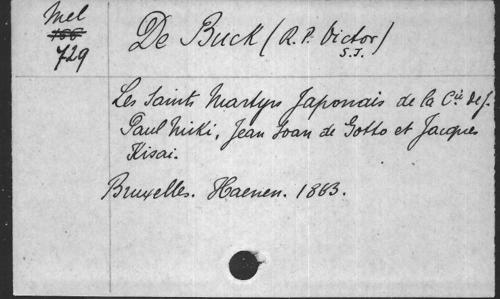 Mel
166
729
De Buck (R.P. Victor)
S.J.
Les Saints Martyrs Japonais de la Cie de J.
Paul Miki, Jean Soan de Gotto et Jacques
Kisai.
Bruxelles. Haenen. 1863.